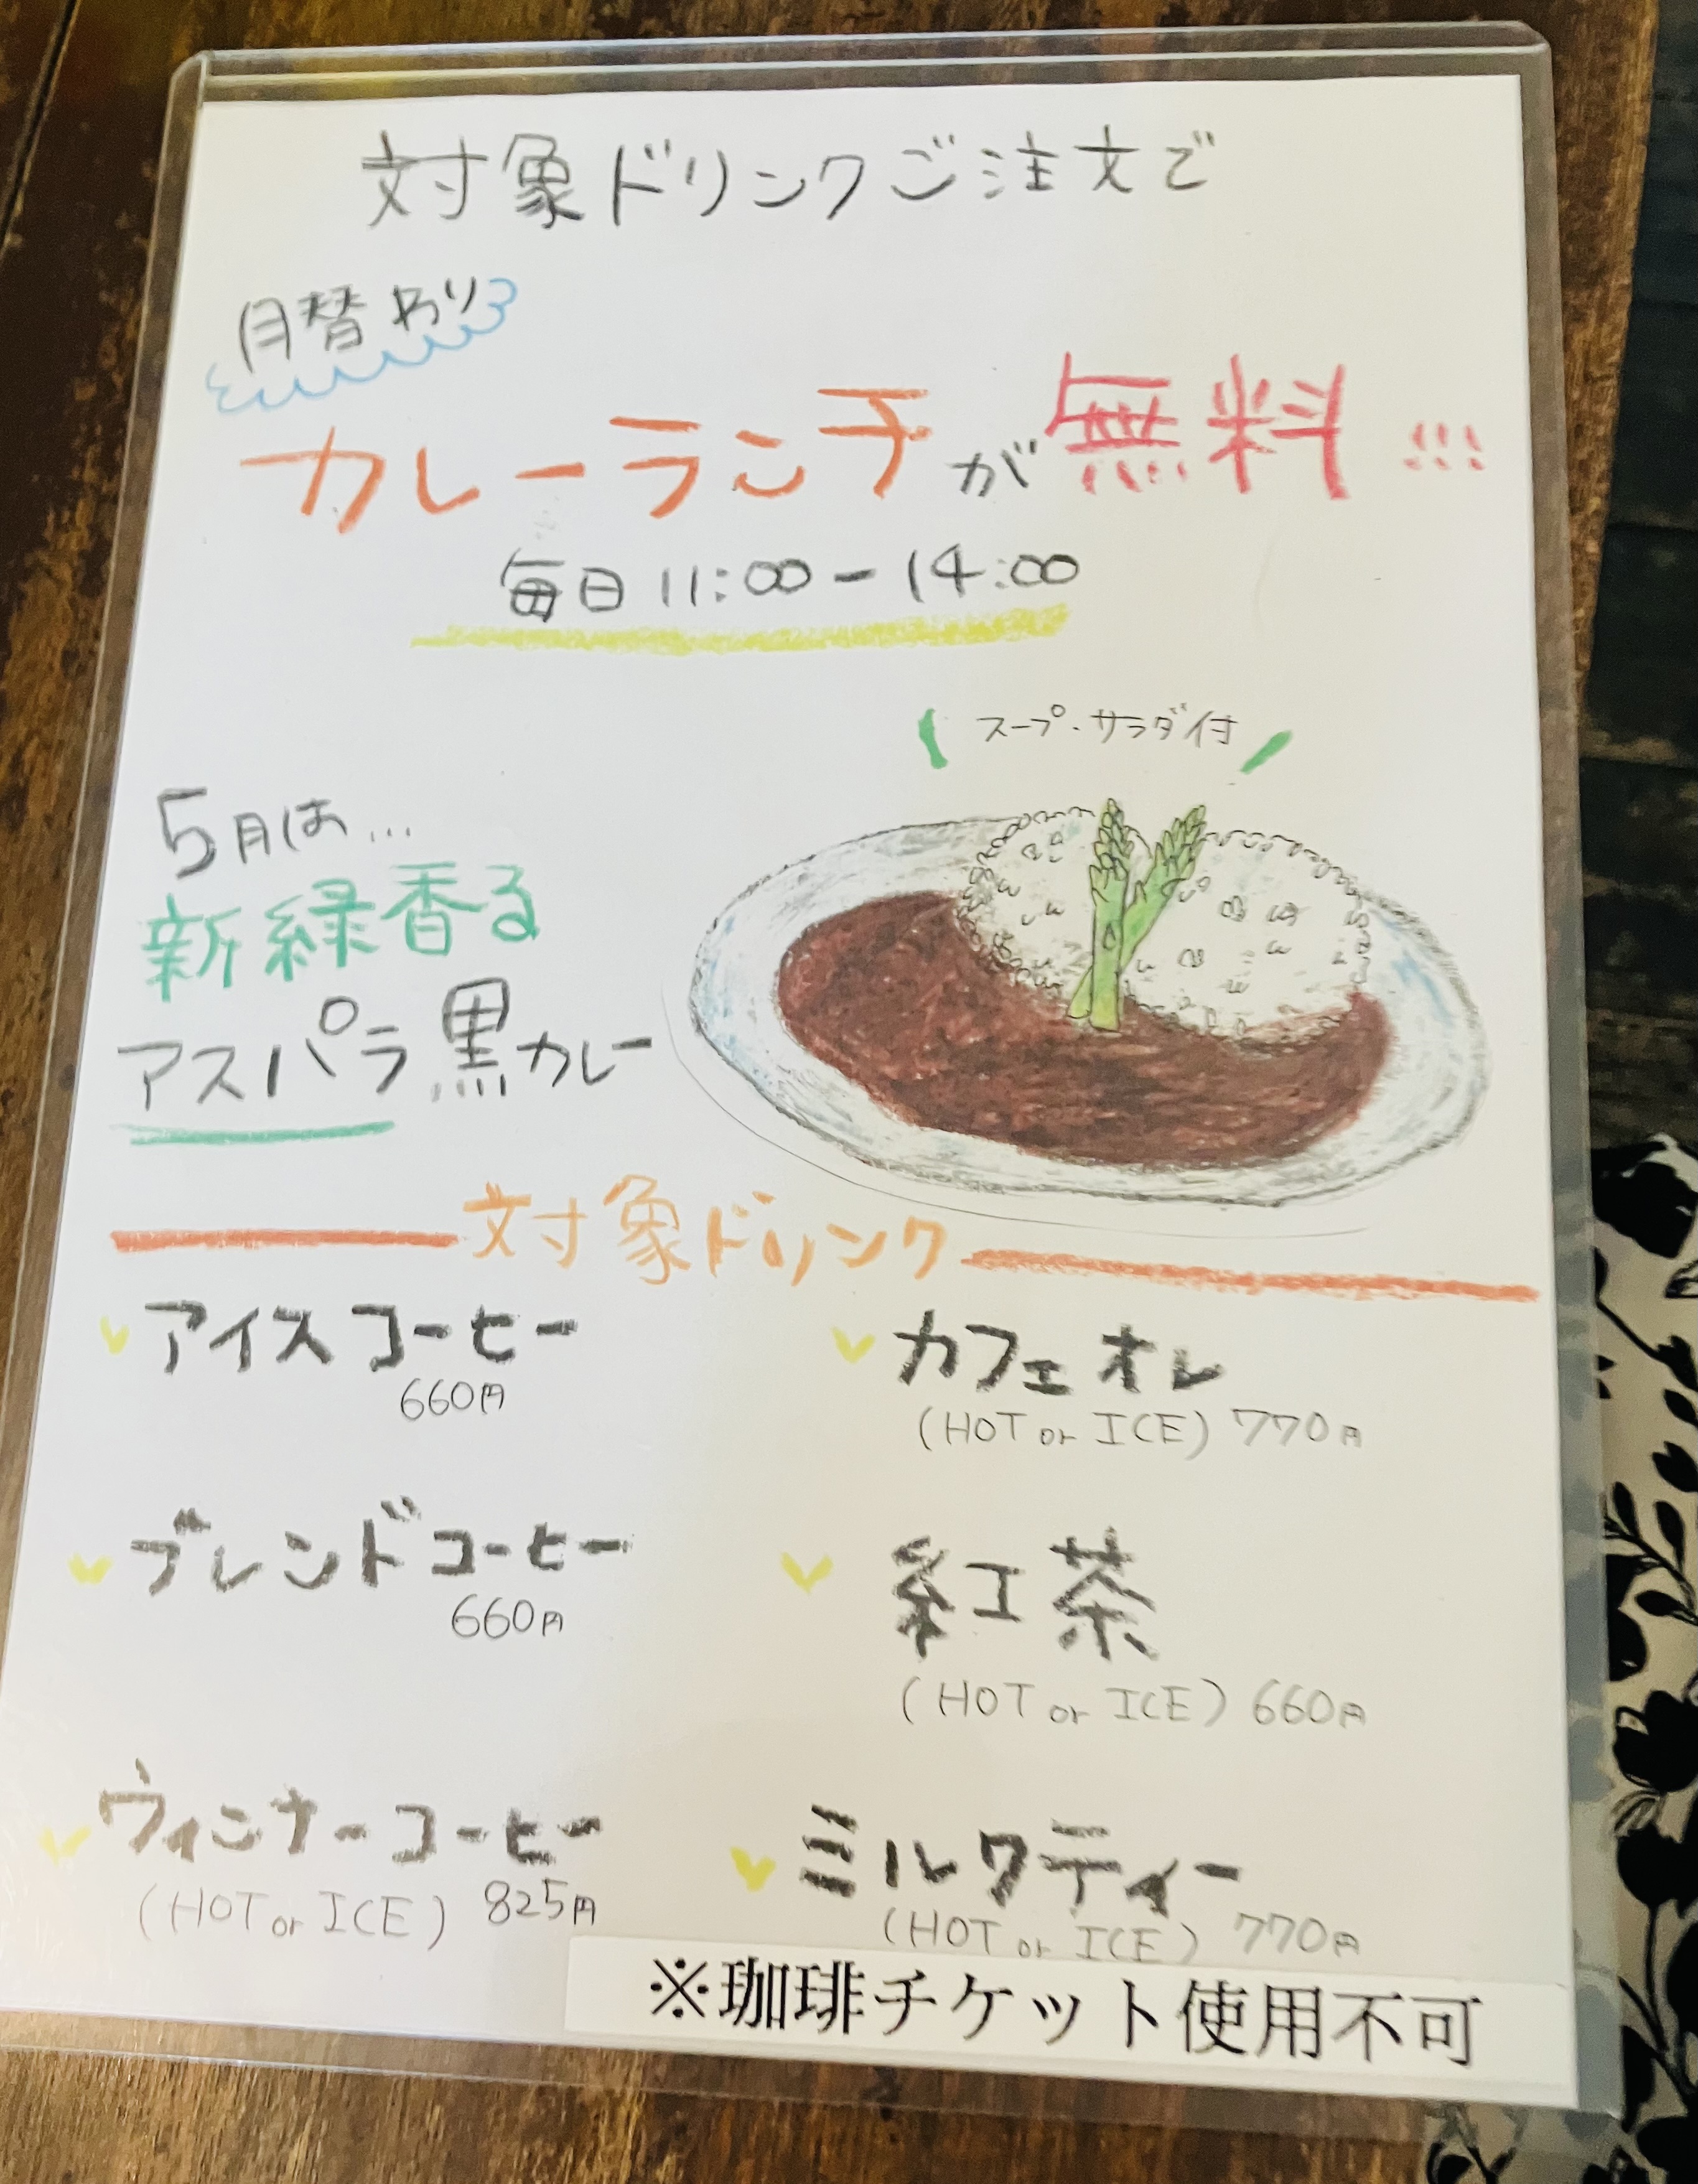 対象ドリンクご注文で
月替わり
カレーランチが無料!!!
毎日11:00-14:00
スープ・サラダ付
5月は...
新緑香る
アスパラ黒カレー
対象ドリンク
アイスコーヒー
660円
カフェオレ
(HOT or ICE) 770円
ブレンドコーヒー
660円
紅茶
(HOT or ICE) 660円
ウィンナーコーヒー
(HOT or ICE) 825円
ミルクティー
(HOT or ICE) 770円
※珈琲チケット使用不可